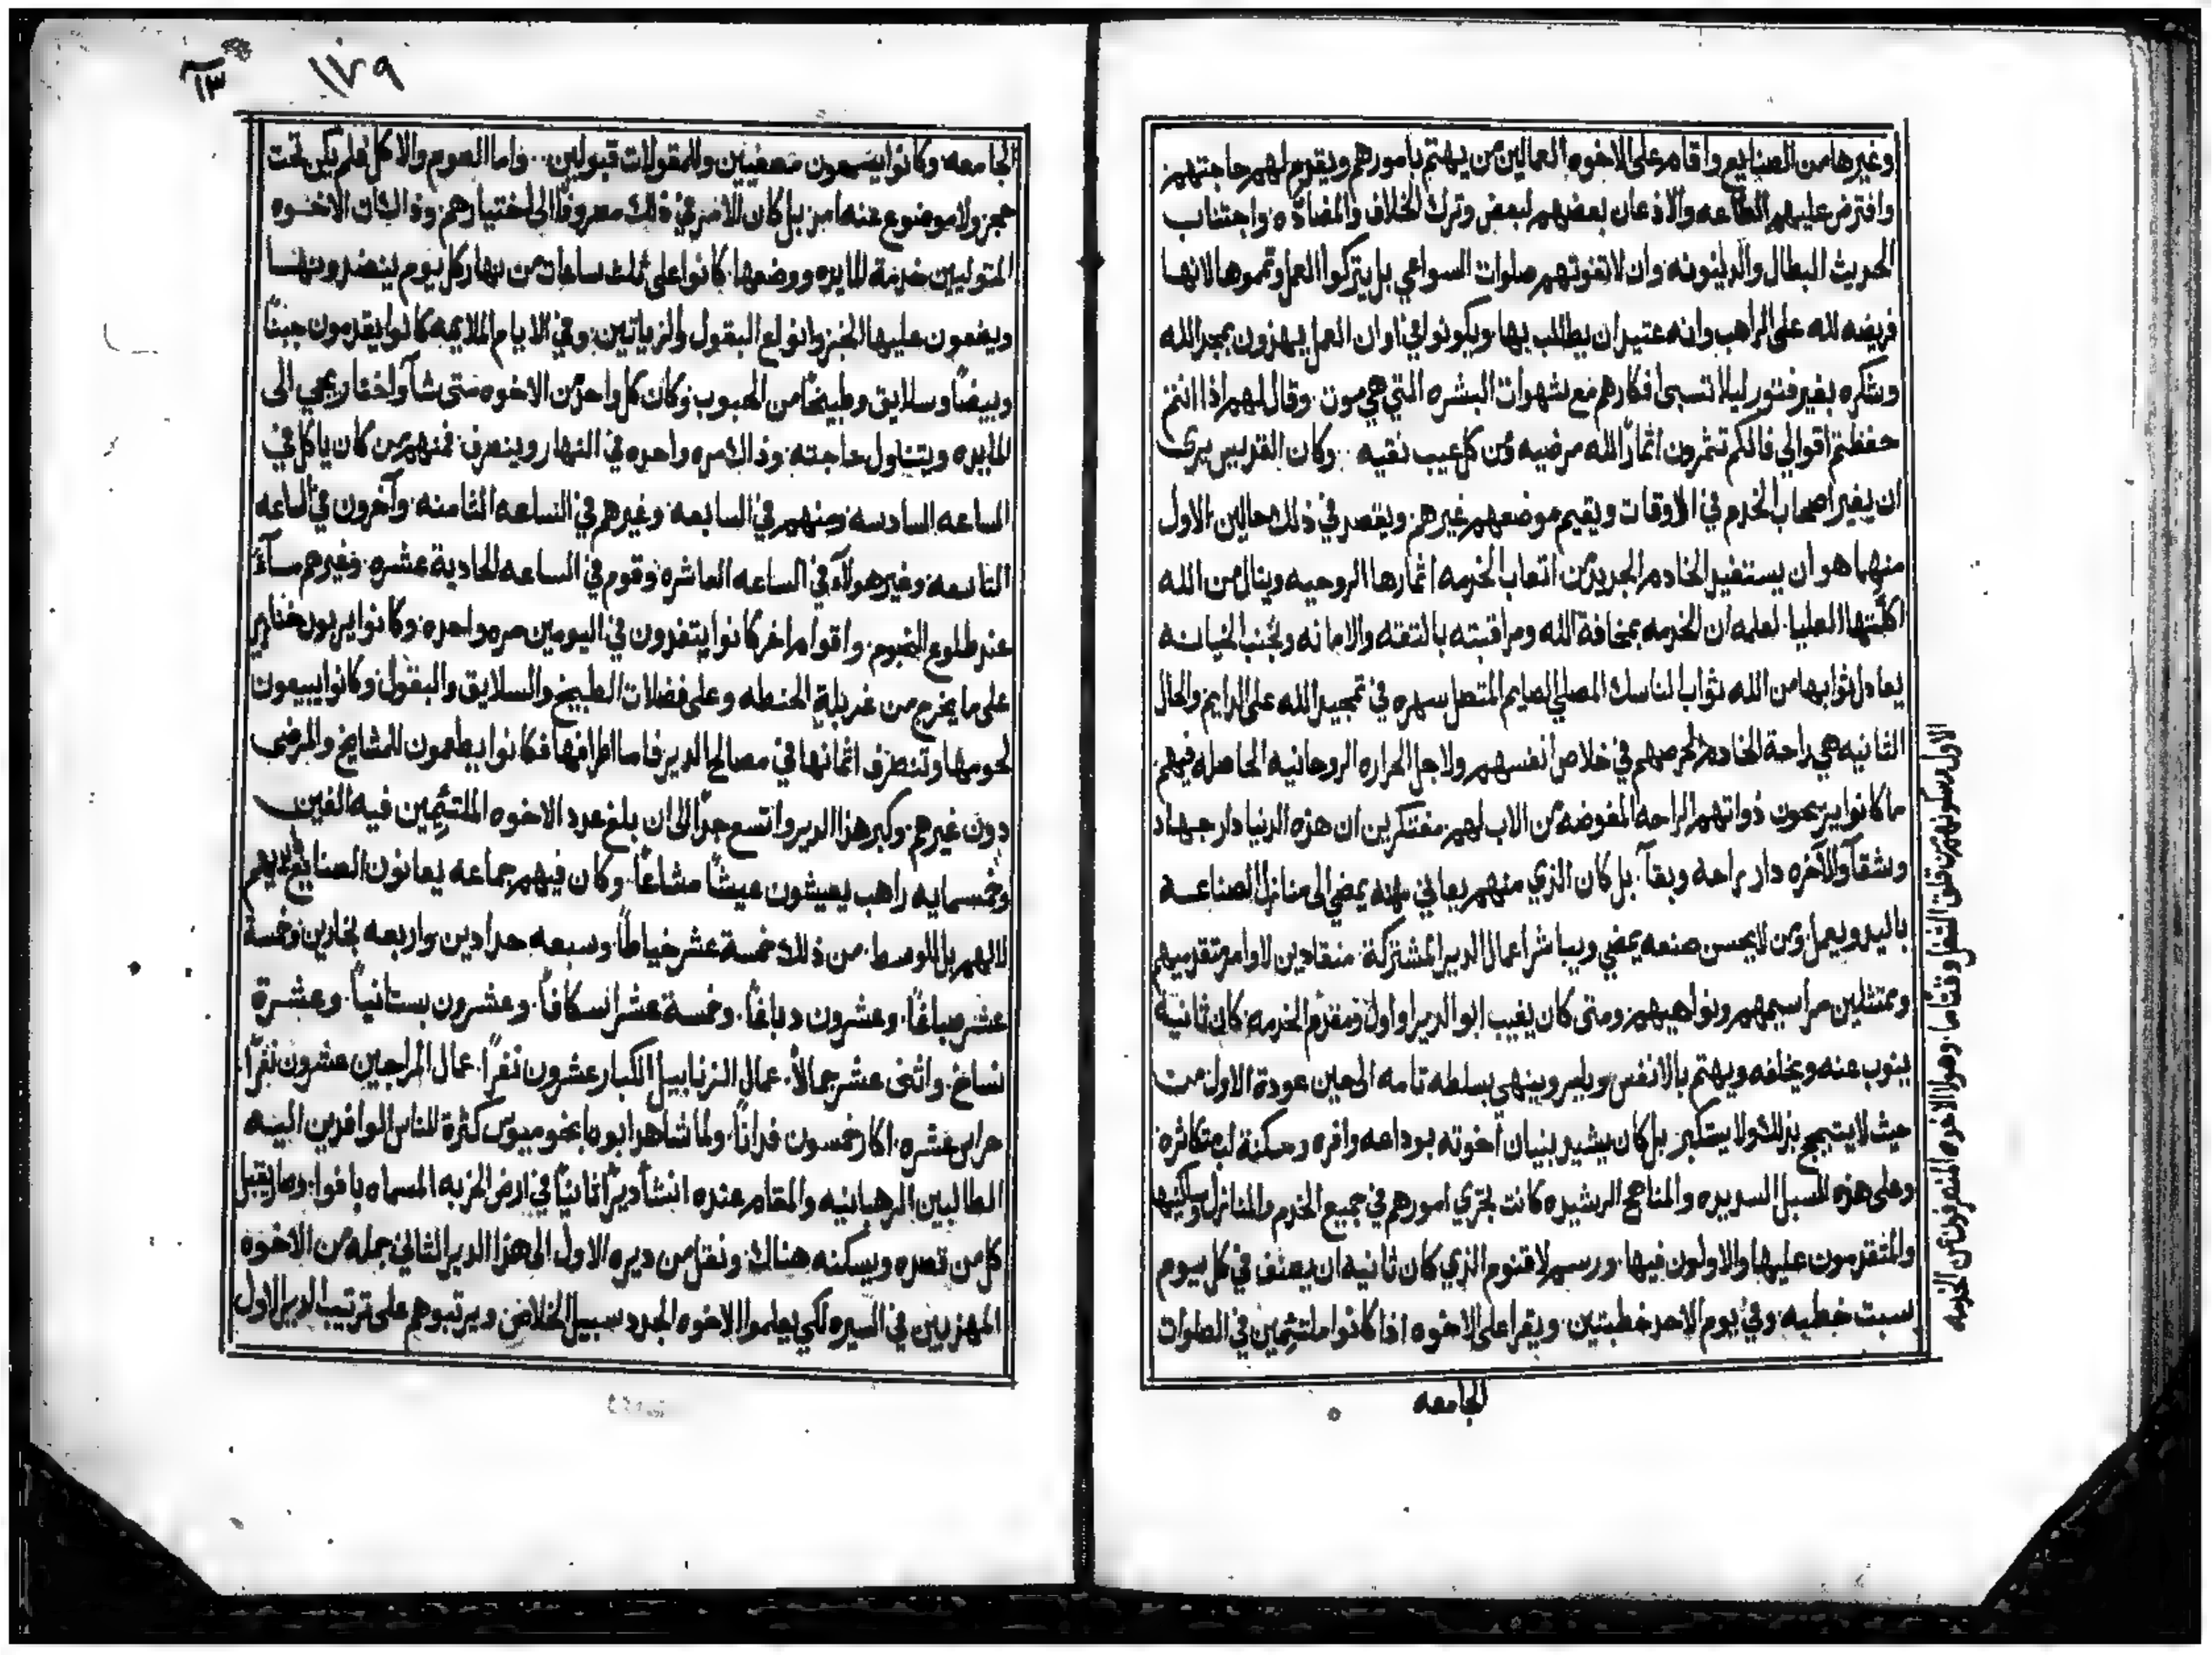 وغيرها من الصنايع واقام على الاخوه العمالين من يهتم بامورهم ويقدم لهم حاجتهم
وافترض عليهم الطاعه والاذعان بعضهم لبعض وترك الخلاف والمضادّه واجتناب
الحديث البطال والدينونه وان لا تفوتهم صلوات السواعي بل يتركوا العمل وتمموها لانها
فريضه لله على الراهب وانه عتيد ان يطالب بها ويكونوا في اوان العمل يهذون بمجد الله
وشكره بغير فتور ليلا تسبى افكارهم مع شهوات البشره التي هي موت وقال لهم اذا انتم
حفظتم اقوالي فانكم تثمرون اثمارًا لله مرضيه ومن كل عيب نقيه وكان القديس يرى
ان يغير اصحاب الخدم في الاوقات ويقيم موضعهم غيرهم ويقصد في ذلك حالين الاول
منهما هو ان يستفيد الخادم الجديد من اتعاب الخدمه اثمارها الروحيه وينال من الله
اكلتها العليا لعلمه ان الخدمه بمخافة الله ومراقبته بالثقه والامانه وتجنب الخيانه
يعادل ثوابها من الله ثواب الناسك المصلي الصايم المتصل سهره في تمجيد الله على الدايم والحال
الثانيه هي راحة الخادم لحرصهم في خلاص انفسهم ولاجل الحراره الروحانيه الحاصله فيهم
ما كانوا يريحون ذواتهم الراحه المفوضه من الاب لهم مفتكرين ان هذه الدنيا دار جهاد
وشقآ والاخره دار راحه وبقآ بل كان الذي منهم يعاني مهنه يمضي الى منازل الصناعه
باليد ويعمل ومن لا يحسن صنعه يمضي ويباشر اعمال الدير المشتركة منقادين لاوامر متقدميهم
وممتثلين مراسيمهم ونواهيهم ومتى كان يغيب ابو الدير او اول ومقدم الخدمه كان ثانيه
ينوب عنه ويخلفه ويهتم بالانفس ويامر وينهي بسلطه تامه الى حين عودة الاول من
حيث لا يتبجح بذلك ولا يستكبر بل كان يشيد بنيان اخوته بوداعه وافره ومسكنة لب متكاثره
وعلى هذه السبل السديده والمناهج الرشيده كانت تجري امورهم في جميع الخدم والمنازل وساكنيها
والمتقدمون عليها والاولون فيها ورسم لاقنوم الذي كان ثانيه ان يعظ في كل يوم
سبت خطبه وفي يوم الاحد خطبتين ويقرا على الاخوه اذا كانوا ملتئمين في الصلوات
الجامعه
الجامعه وكانوا يسمعون مصغيين وللمقولات قبولين واما الصوم والاكل فلم يكن تحت
حجز ولا موضوع عنه امر بل كان الامر في ذلك معروفًا الى اختيارهم وذالك ان الاخوه
المتوليين خدمة المايده ووضعها كانوا على ثلث ساعات من نهار كل يوم ينضدونها
ويضعون عليها الخبز وانواع البقول والزياتين وفي الايام الملايمه كانوا يقدمون جبنًا
وبيضًا وسلايق وطبيخًا من الحبوب وكان كل واحد من الاخوه متى شآ واختار يجي الى
المايده ويتناول حاجته وذالك مره واحده في النهار وينصرف فمنهم من كان ياكل في
الساعه السادسه ومنهم في السابعه وغيرهم في الساعه الثامنه وآخرون في الساعه
التاسعه وغير هولآء في الساعه العاشره وقوم في الساعه الحادية عشره وغيرهم مسآءً
عند طلوع النجوم واقوام اخر كانوا يتغدون في اليومين مره واحده وكانوا يربون خنازير
على ما يخرج من غربلة الحنطه وعلى فضلات الطبيخ والسلايق والبقول وكانوا يبيعون
لحومها وتنصرف اثمانها في مصالح الدير فاما اطرافها فكانوا يطعمون للمشايخ والمرضى
دون غيرهم وكبر هذا الدير واتسع جدًا الى ان بلغ عدد الاخوه الملتئمين فيه الفين
وخمسمايه راهب يعيشون عيشًا مشاعًا وكان فيهم جماعه يعانون الصنايع
من ذلك خمسة عشر خياطًا وسبعه حدادين واربعه نجارين وخمسة
عشر صباغًا وعشرون دباغًا وخمسة عشر اسكافًا وعشرون بستانيًا وعشرة
نساخ واثنى عشر جمالاً عمال الزنابيل الكبار عشرون نفرًا عمال المراجين عشرون نفرًا
عشره اكار خمسون فدانًا ولما شاهد ابونا بخوميوس كثرة الناس الوافدين اليه
الطالبين الرهبانيه والمقام عنده انشأ ديرًا ثانيًا في ارض الخربه المسماه بافوا وصار يقبل
كل من قصده ويسكنه هناك ونقل من ديره الاول الى هذا الدير الثاني جمله من الاخوه
المهذبين في السيره لكي يعلموا الاخوه الجدد سبيل الخلاص ويرتبوهم على ترتيب الدير الاول